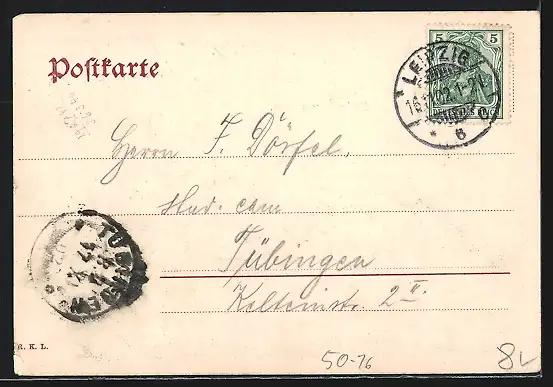 Postkarte
5 5
LEIPZIG
* 6
Herrn F. Dörfel,
stud. cam
Tübingen
TÜBINGEN
Kelternstr. 2 II.
R. K. L.
50-76
8L